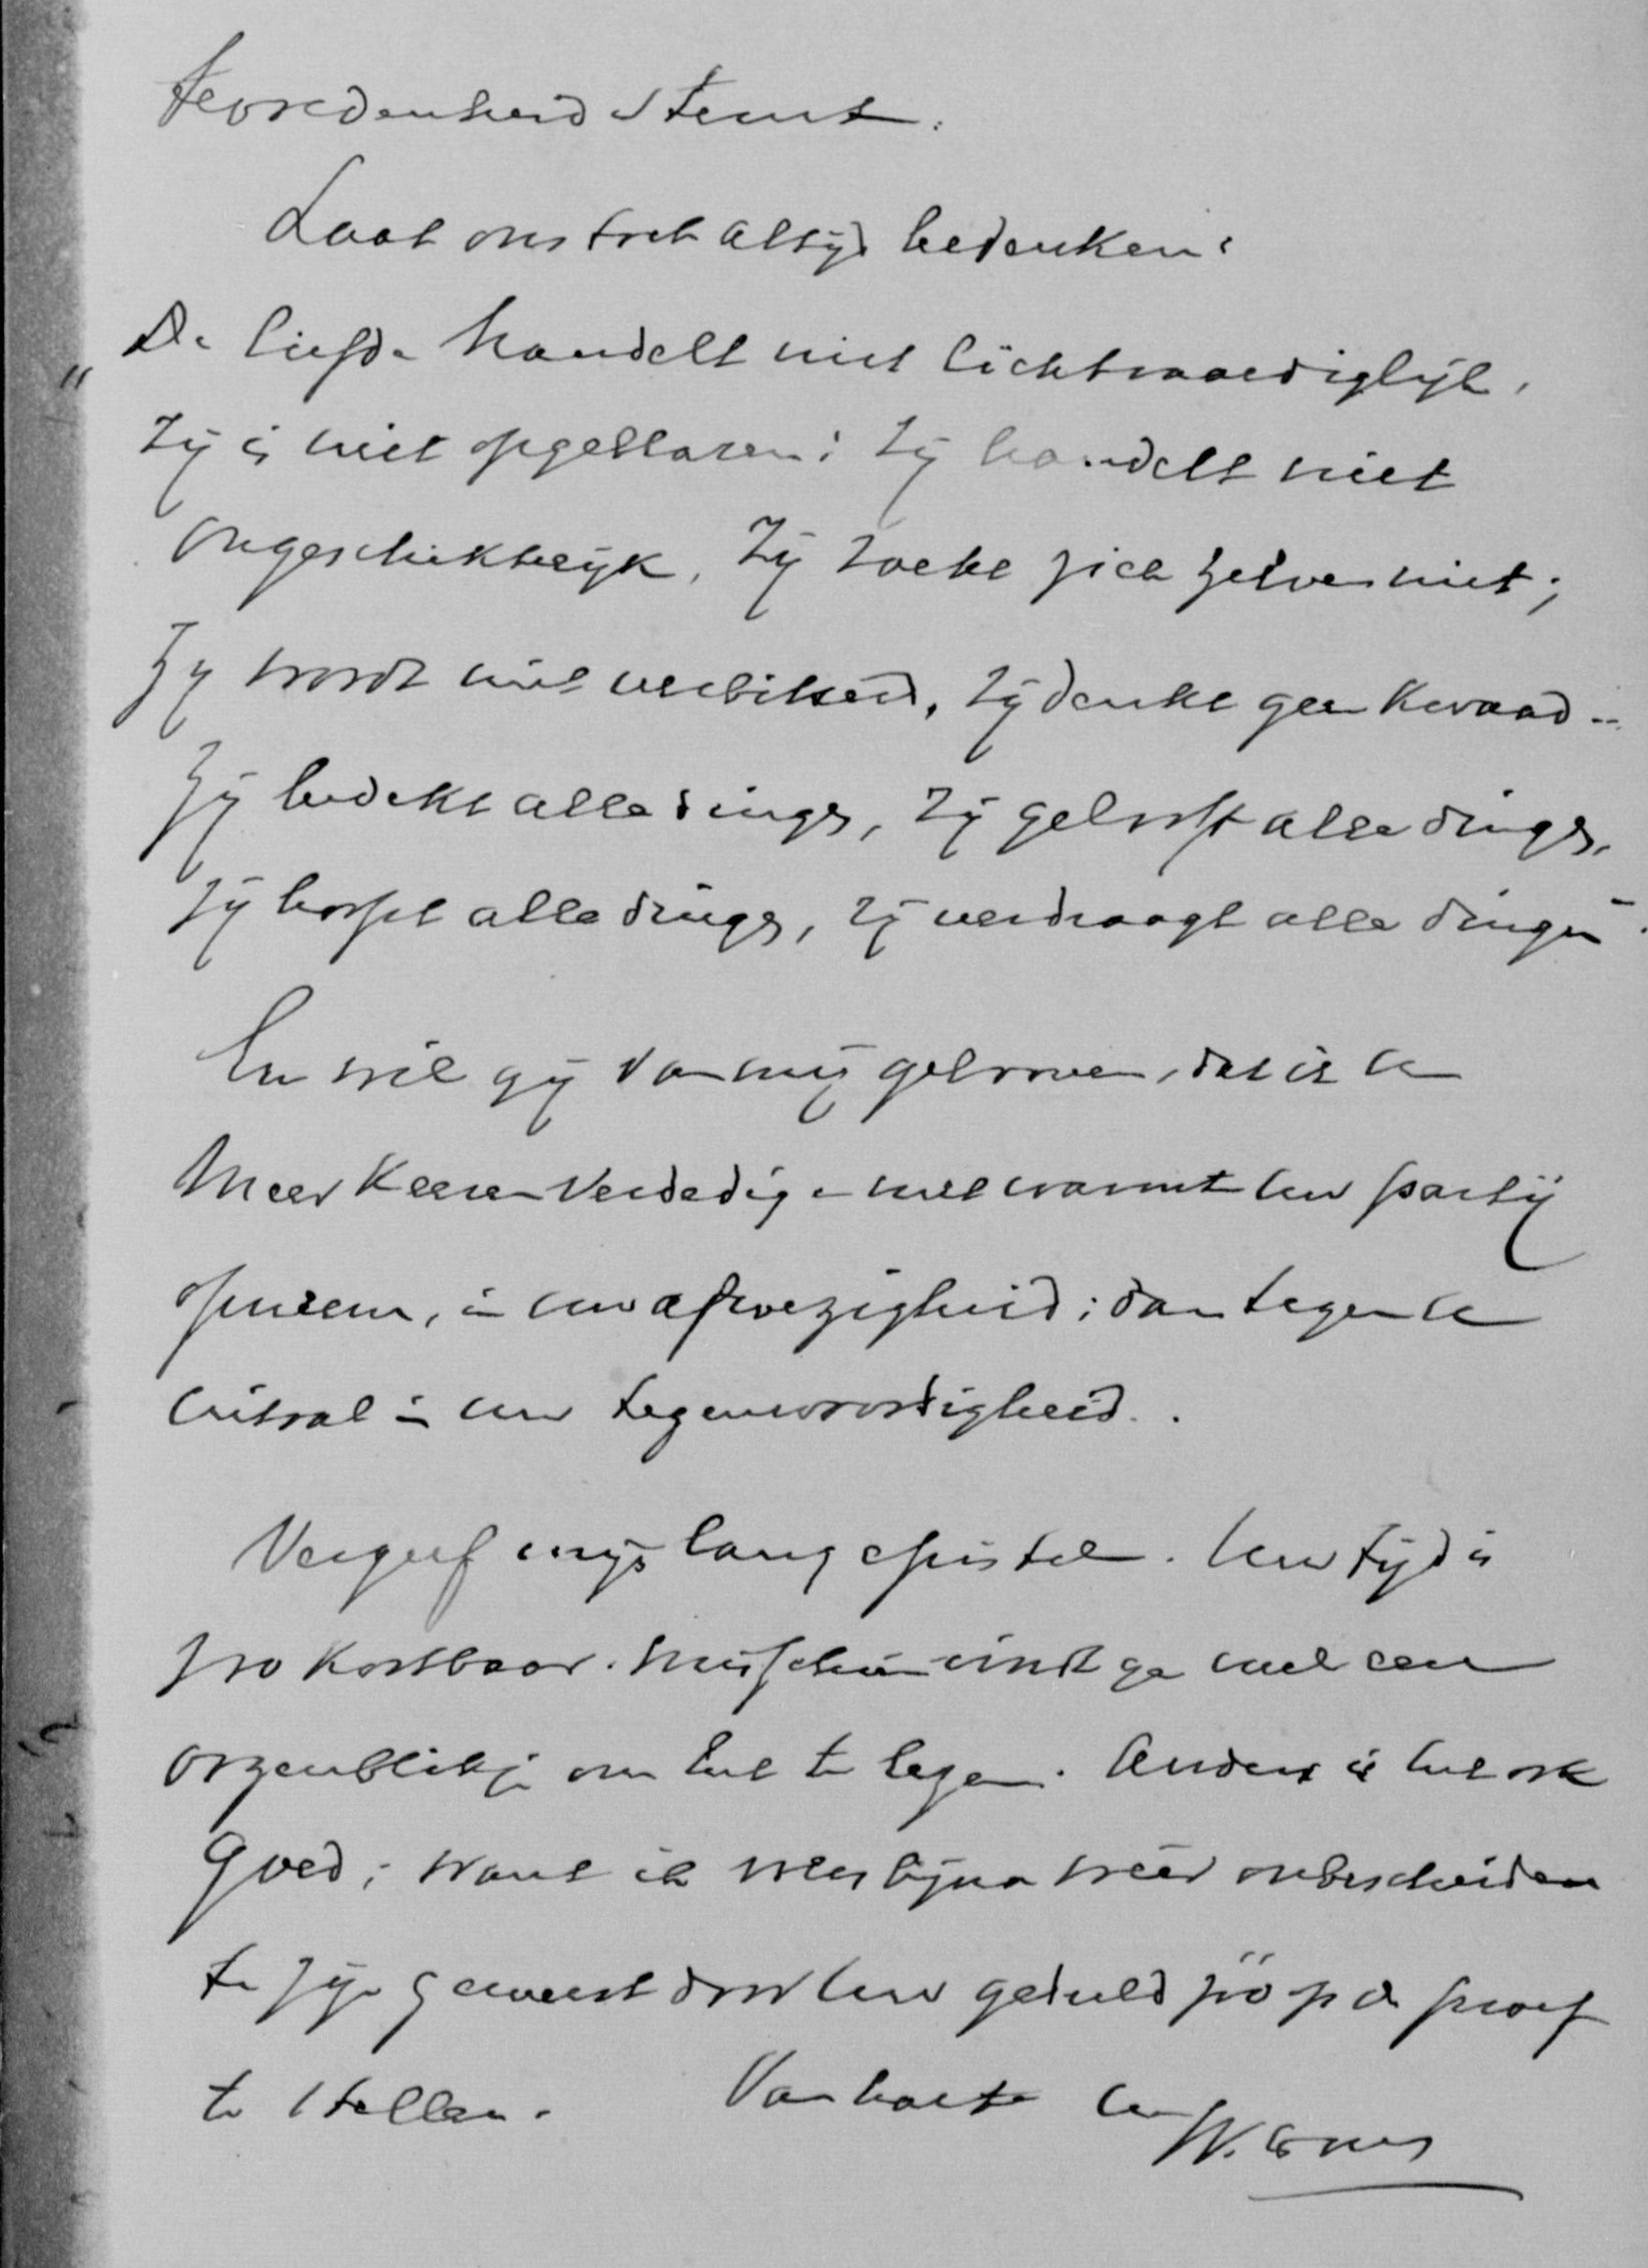 tevredenheid stemt.
Laat ons toch altijd bedenken:
„De liefde handelt niet lichtvaardiglijk,
zij is niet opgeblazen; zij handelt niet
ongeschiktelijk, zij zoekt zich zelven niet;
zij wordt niet verbitterd, zij denkt geen kwaad..
zij bedekt alle dingen, zij gelooft alle dingen,
zij hoopt alle dingen, zij verdraagt alle dingen".
En wil gij van mij gelooven, dat ik U
meer keeren verdedig en met warmte Uw partij
opneem, in Uw afwezigheid; dan tegen U
uitval in Uw tegenwoordigheid.
Vergeef mijn lang epistel. Uw tijd is
zoo kostbaar. Misschien vindt ge wel een
oogenblikje om het te lezen. Anders is het ook
goed; want ik vrees bijna weer onbescheiden
te zijn geweest door Uw geduld zóó op de proef
te stellen. Van harte Uw